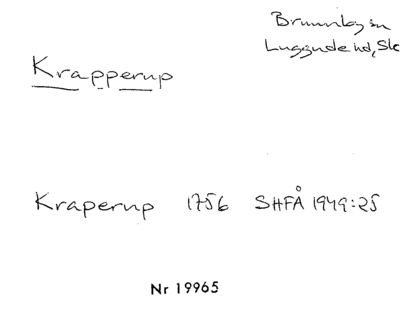 Brunnby sn
Luggude hd, Sk
Krapperup
Kraperup 1756 SHFÅ 1949:25
Nr 19965